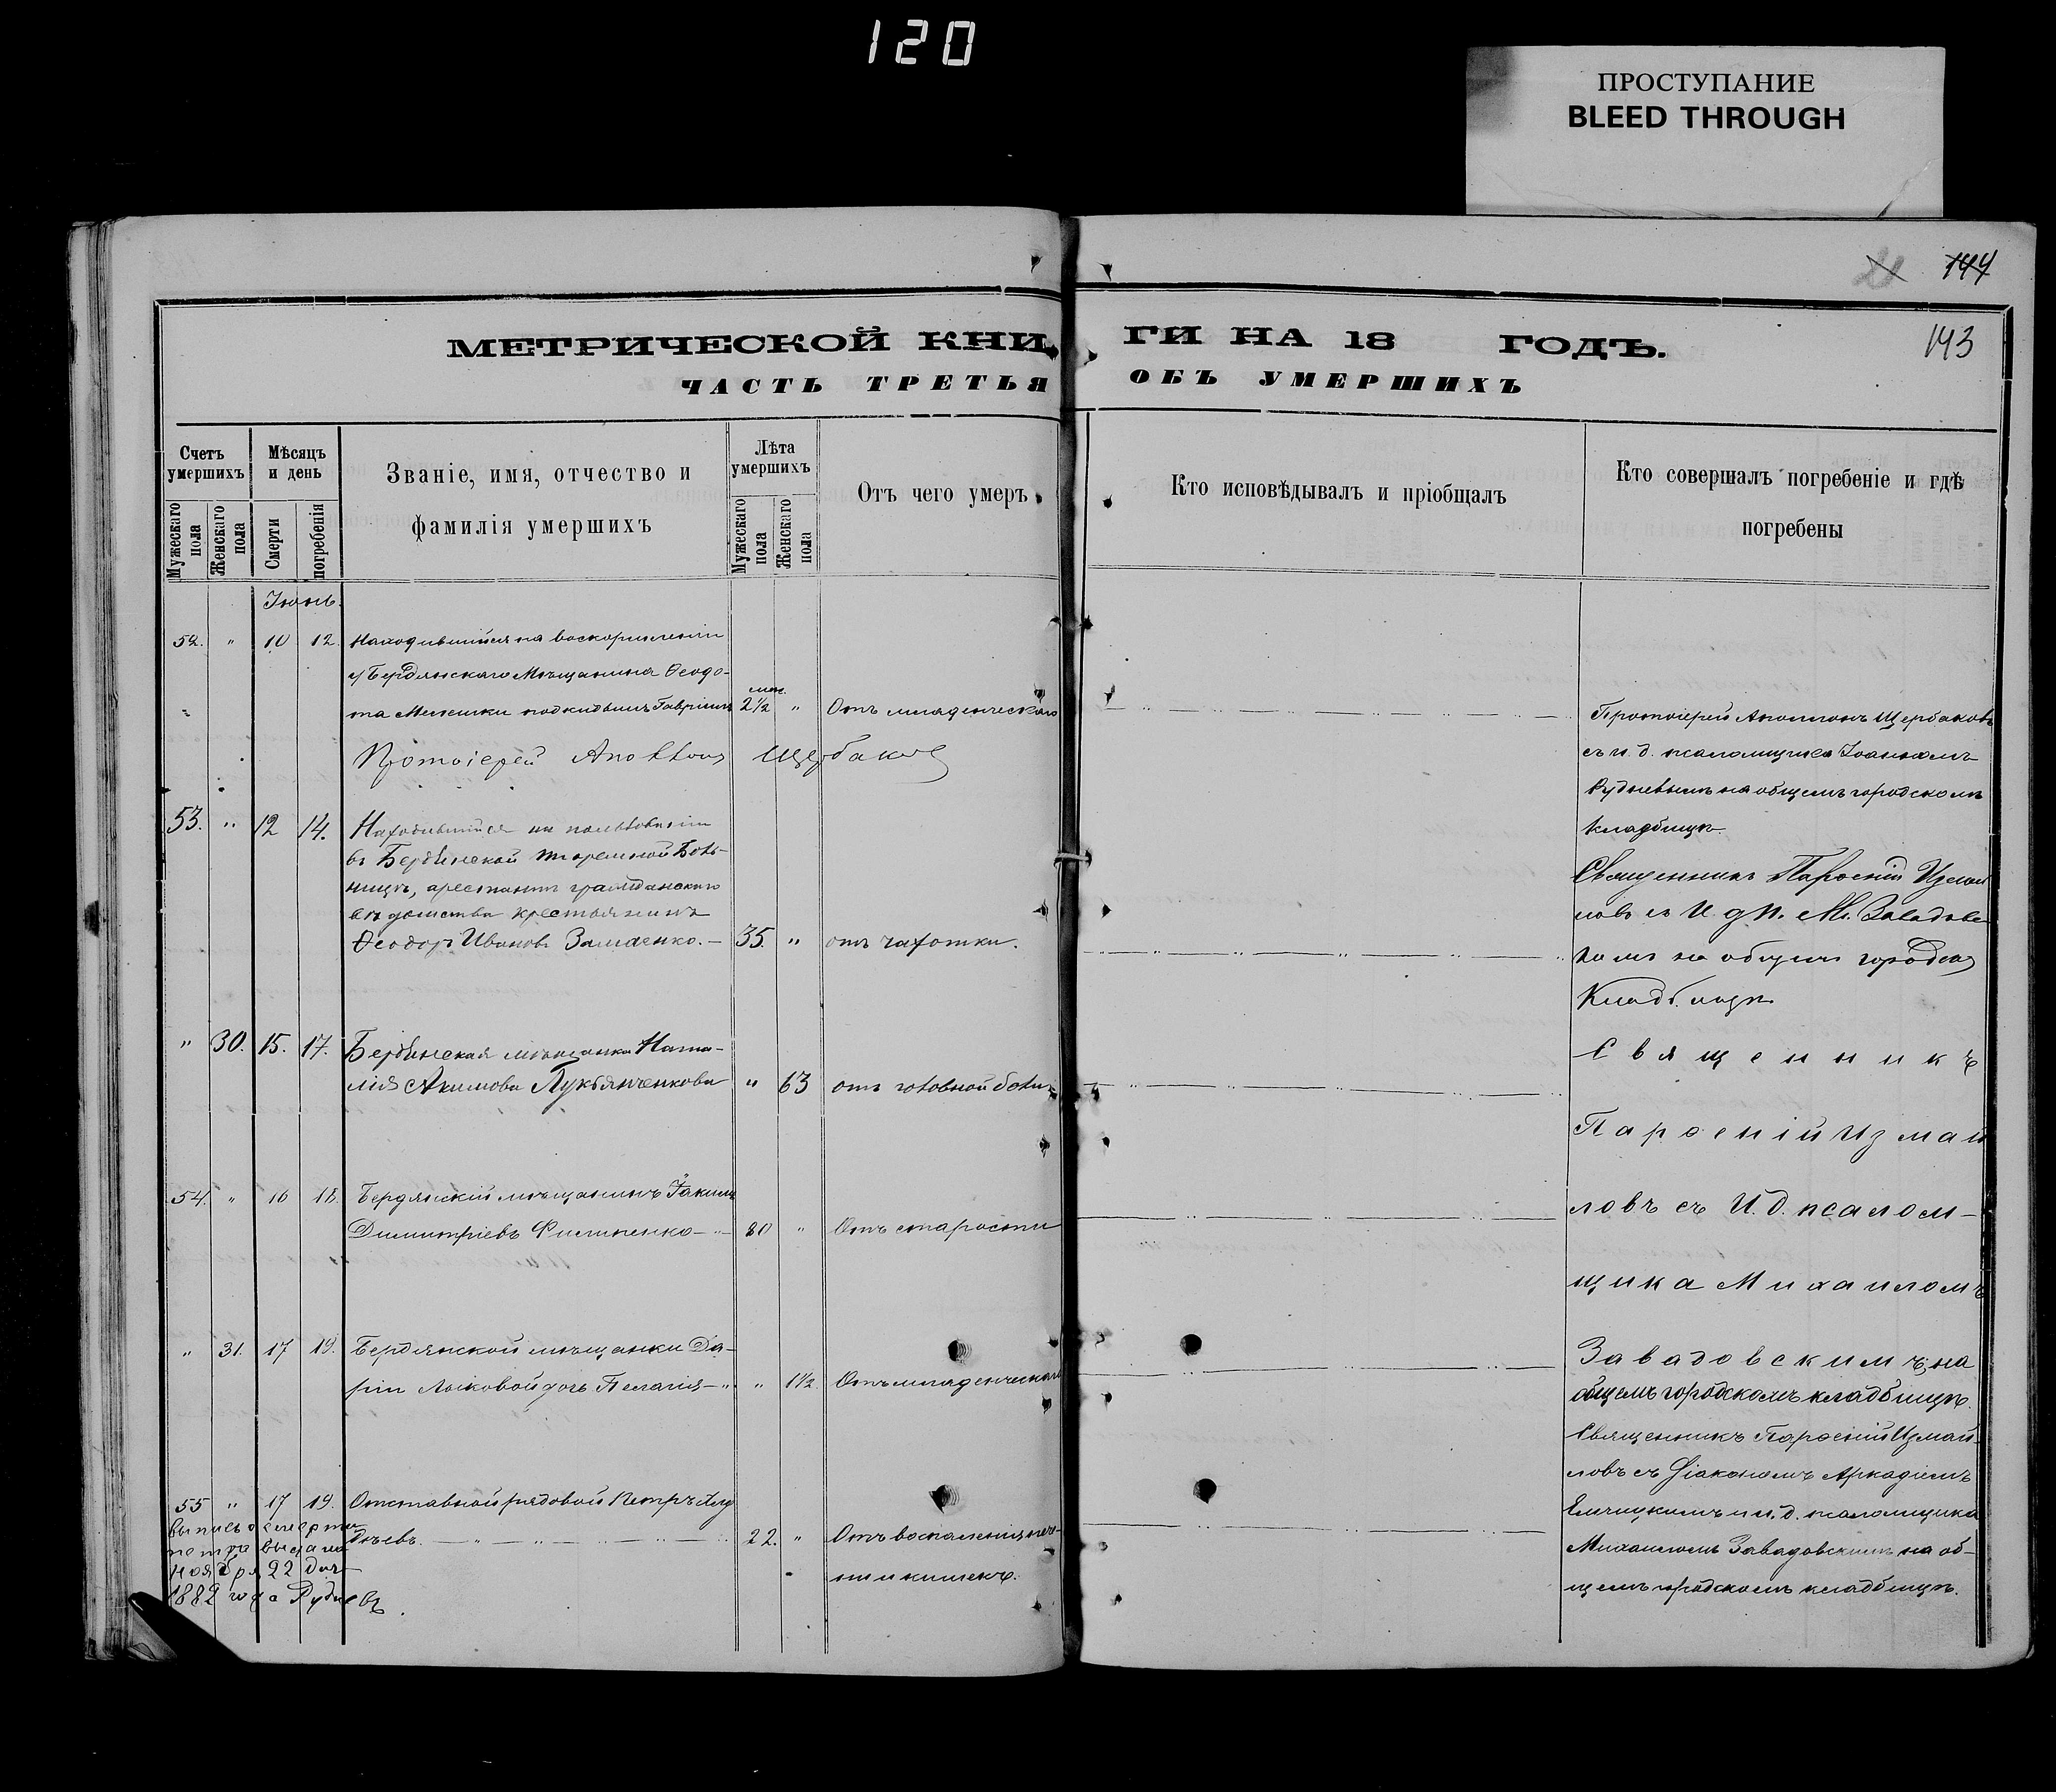 120
ПРОСТУПАНИЕ
BLEED THROUGH
144
МЕТРИЧЕСКОЙ КНИ ГИ НА 18 ГОДЪ.
143
ЧАСТЬ ТРЕТЬЯ ОБЪ УМЕРШИХЪ
Счетъ умершихъ
Мужескаго пола
Женскаго пола
Мѣсяцъ и день
Смерти
погребенія
Званіе, имя, отчество и
фамилія умершихъ
Лѣта умершихъ
Мужескаго пола
Женскаго пола
Отъ чего умеръ
Кто исповѣдывалъ и пріобщалъ
Кто совершалъ погребеніе и гдѣ
погребены
Іюнь.
52. " 10 12. Находившійся на воскормленіи
у Бердянскаго Мѣщанина Ѳеодо-
та подкидышъ Гавріилъ мѣс. 2½ " Отъ младенческаго
Протоіерей Аполлонъ Щербаковъ
съ и. д. псаломщика Іоанномъ
Рудневымъ на общемъ городскомъ
кладбищѣ.
Протоіерей Аполлонъ Щербаковъ
53. " 12 14. Находившійся на пользованіи
въ Бердянской тюремной Боль-
ницѣ, арестантъ гражданскаго
вѣдомства крестьянинъ
Ѳеодоръ Ивановъ 35. " отъ чахотки.
Священникъ Парѳеній Измай
ловъ съ И. д. п. М. Завадовс
кимъ на общемъ городско
Кладбищѣ.
" 30. 15. 17. Бердянская мѣщанка Ната-
лія Акимова Лукьянченкова " 63 отъ головной боли
Священникъ
Парѳеній Измай
54. " 16 18. Бердянскій мѣщанинъ Іакимъ
Димитріевъ Филипенко 80 " Отъ старости
ловъ съ И. д. псалом-
щика Михаиломъ
" 31. 17 19. Бердянской мѣщанки Да-
ріи дочь Пелагія " 1½. Отъ младенческаго
Завадовскимъ, на
общемъ городскомъ кладбищѣ.
55 " 17 19. Отставной рядовой Петръ
22. " Отъ воспаленія
и кишекъ.
Священникъ Парѳеній Измай-
ловъ съ Діакономъ Аркадіемъ
и и. д. псаломщика
Михаиломъ Завадовскимъ на об-
щемъ городскомъ кладбищѣ.
Выпись о смерти
Петра выдана
ноября 22 дня
1882 года Рудневъ.